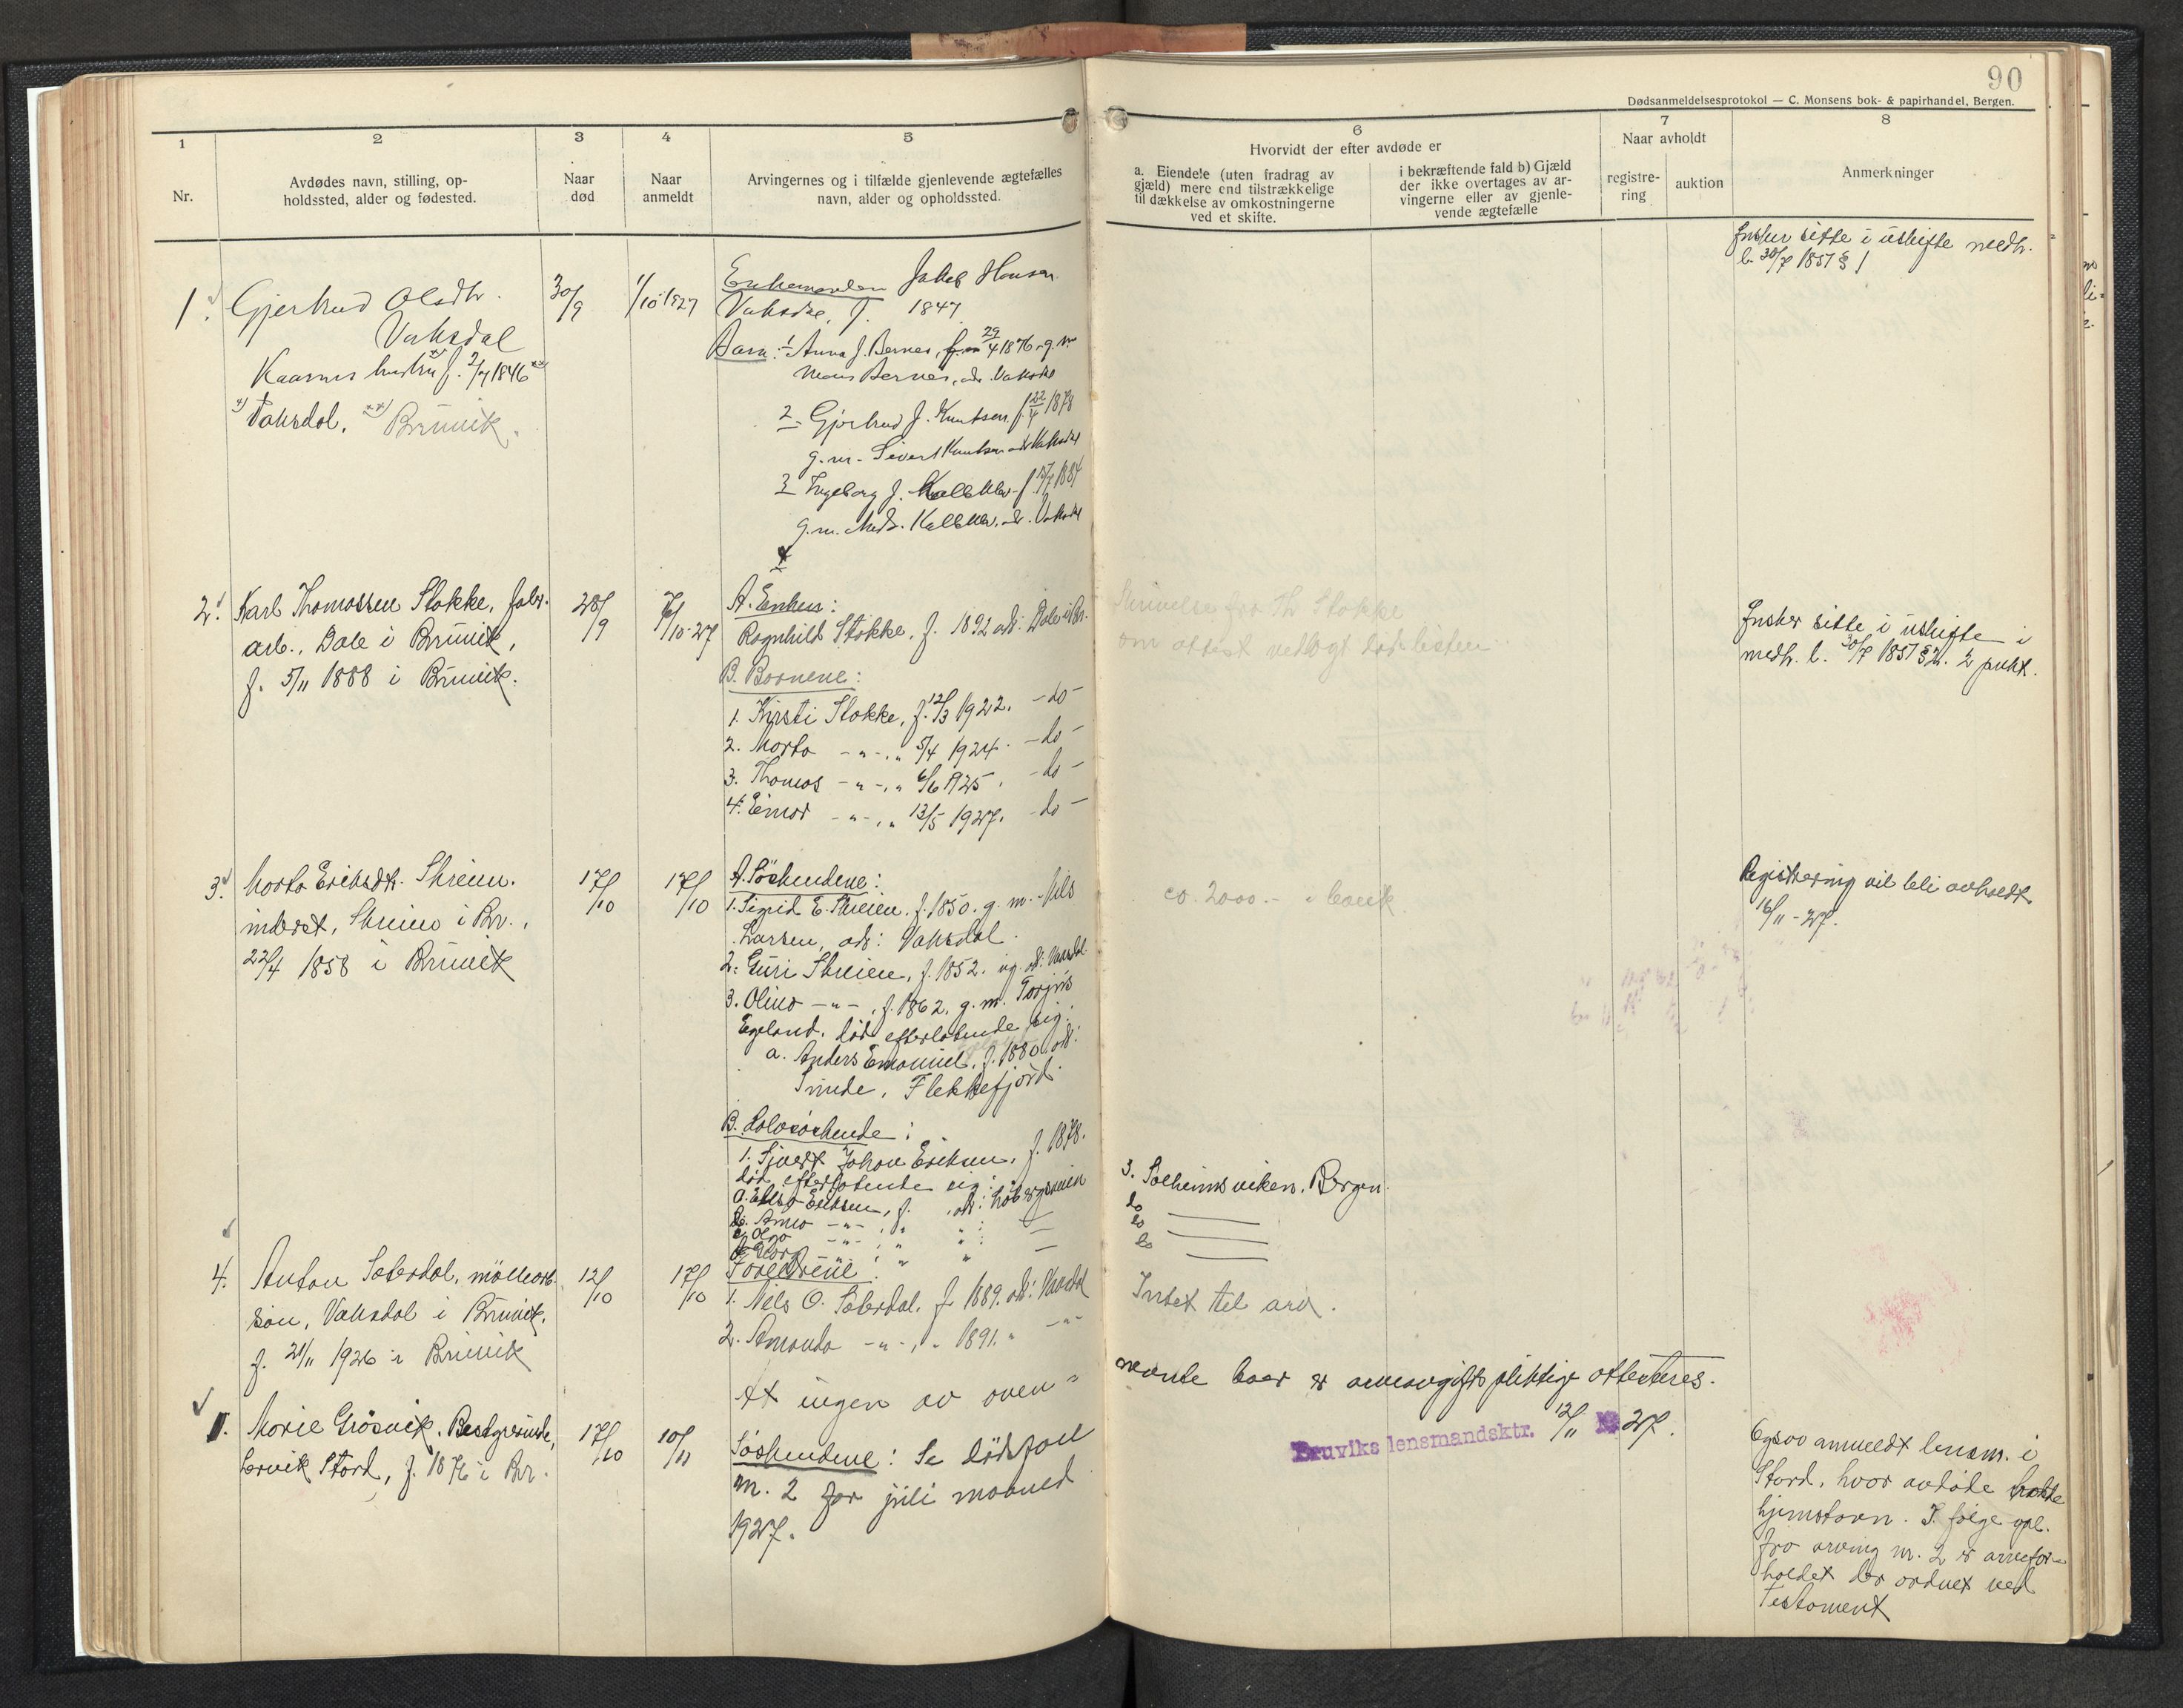 90
Dødsanmeldelsesprotokol — C. Monsens bok- & papirhandel, Bergen.
1
2
3
4
5
6
7
8
Nr.
Avdødes navn, stilling, op-
holdssted, alder og fødested.
Naar
død
Naar
anmeldt
Arvingernes og i tilfælde gjenlevende ægtefælles
navn, alder og opholdssted.
Hvorvidt der efter avdøde er
a. Eiendele (uten fradrag av
gjæld) mere end tilstrækkelige
til dækkelse av omkostningerne
ved et skifte.
i bekræftende fald b) Gjæld
der ikke overtages av ar-
vingerne eller av gjenle-
vende ægtefælle
Naar avholdt
registre-
ring
auktion
Anmerkninger
1.
Gjertrud Olsdtr.
Vaksdal
Kaarmes hustru f. 2/7 1846
Vaksdal. Bruvik.
30/9
1/10 1927
Enkemanden Jakob Hansen
Vaksdal, f. 1847
Barn: 1 Anna J. Bernes, 29/4 1876. g. m.
Mons Bernes, adr. Vaksdal
2. Gjertrud J. Knutsen f. 22/4 1878
g. m. Sivert Knutsen adr Vaksdal
3 Ingeborg J. Kalleklev f. 1884
g. m. Kalleklev. adr. Vaksdal
Ønsker sitte i uskifte medh.
l. 30/7 1851 § 1
2.
Karl Thomassen Stokke, fabr.
arb., Dale i Bruvik,
f. 5/11 1888 i Bruvik.
28/9
7/10-27
A. Enken:
Ragnhild Stokke, f. 1892 adr: Dale i Br.
B. Barnene:
1. Kirsti Stokke, f. 12/3 1922. -do-
2. Marta -"-, " 5/4 1924. -do-
3. Thomas -"-, " 6/6 1925. -do-
4. Einar -"-, " 13/5 1927. -do-
Skrivelse fra Th Stokke
om attest vedlagt dødslisten
Ønsker sitte i uskifte i
medh. l. 30/7 1851 § 2. 2 punkt.
3.
Marta Eriksdtr. Skreien.
inderst, Skreien i Br.,
22/4 1858 i Bruvik
17/10
17/10
A. Søskendene:
1. Sigrid E. Skreien. f. 1850. g. m. Nils
Larsen, adr: Vaksdal.
2. Guri Skreien, f. 1852. ug. adr: Vaksdal.
3. Olina -"-, f. 1862, g. m. Torjus
Egeland, død efterlatende sig:
a. Anders Emanuel, f. 1880. adr:
Sunde, Flekkefjord.
B. Halvsøskende:
1. Sjurd Johan Eriksen, f. 1878.
død efterlatende sig:
a. Eriksen, f. , adr:
b. Anna -"-, "
c. Olga -"-, "
d. Georg -"-, "
3. Solheimsviken. Bergen.
do
do
do
ca. 2000.- i bank.
Registrering vil bli avholdt
16/11-27.
4.
Anton Sæterdal, møllearb.
søn, Vaksdal i Bruvik.
f. 21/11 1926 i Bruvik
12/10
17/10
Forældrene:
1. Nils O. Sæterdal. f. 1889. adr: Vaksdal
2. Amanda -"-, " 1891. " -"-
Intet til arv.
At ingen av oven=
nævnte boer er arveavgiftspliktige attesteres.
Bruviks lensmandsktr. 12/11 27.
1.
Marie Gråsvik. Bestyrerinde,
Lervik Stord, f. 1876 i Br.
17/10
10/11
Søskendene: Se dødsfall
nr. 2 for juli maaned
1927.
Ogsaa anmeldt lensm. i
Stord, hvor avdøde hadde
hjemstavn. I følge opl.
fra arving nr. 2 er arvefor-
holdet der ordnet ved
Testament